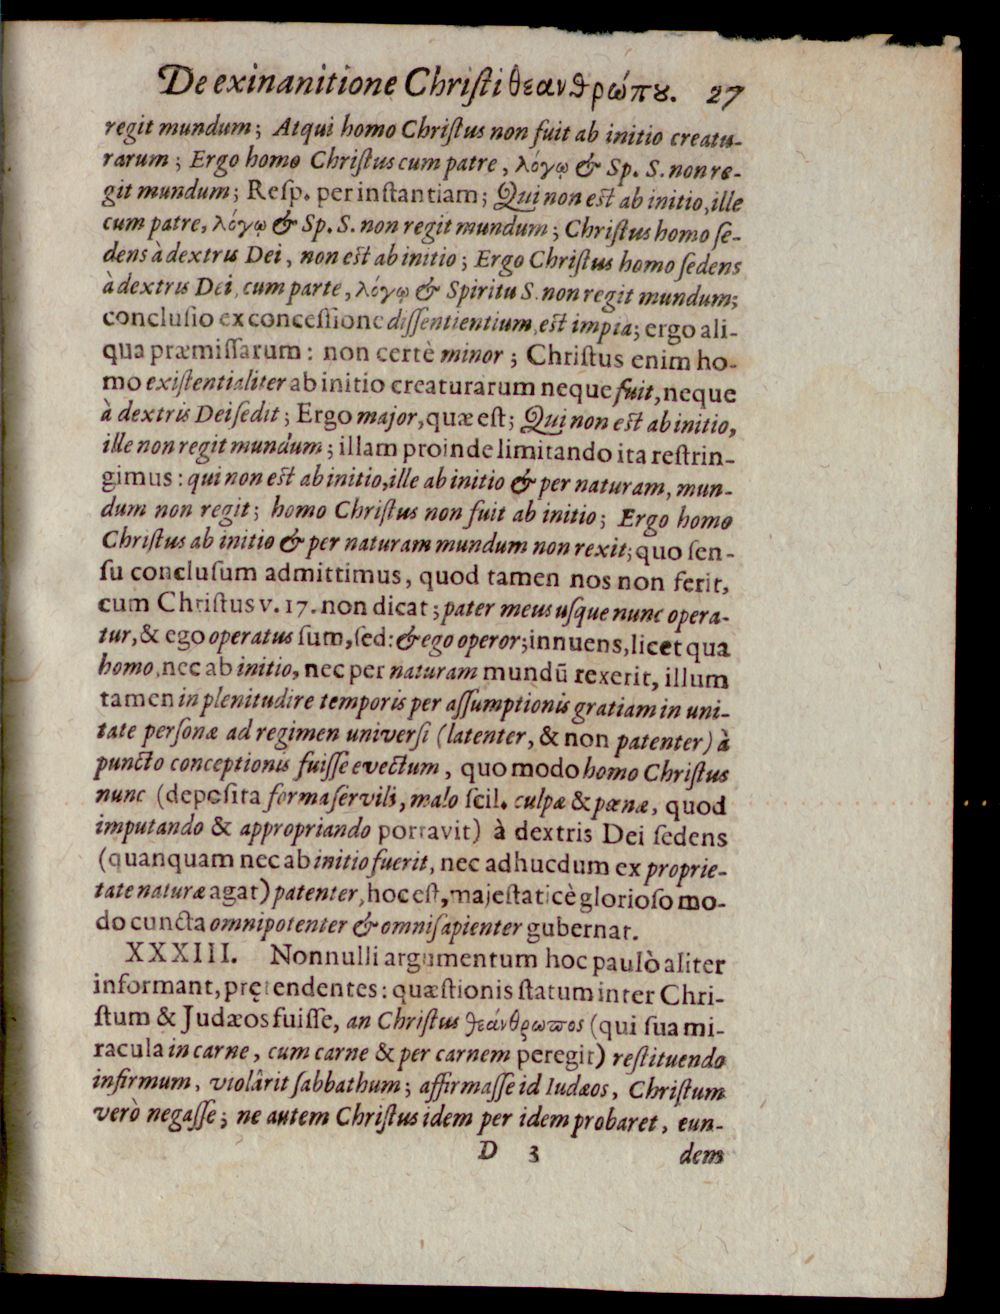 De exinanitione Christi θεανθρώπȣ. 27
regit mundum; Atqui homo Christus non fuit ab initio creatu-
rarum; Ergo homo Christus cum patre, λόγῳ & Sp. S. non re-
git mundum; Resp. per instantiam; Qui non est ab initio, ille
cum patre, λόγῳ & Sp. S. non regit mundum; Christus homo se-
dens à dextris Dei, non est ab initio; Ergo Christus homo sedens
à dextris Dei, cum parte, λόγῳ & Spiritu S. non regit mundum;
conclusio ex concessione dissentientium, est impia; ergo ali-
qua præmissarum: non certè minor; Christus enim ho-
mo existentialiter ab initio creaturarum neque fuit, neque
à dextris Dei sedit; Ergo major, quæ est; Qui non est ab initio,
ille non regit mundum; illam proinde limitando ita restrin-
gimus: qui non est ab initio, ille ab initio & per naturam, mun-
dum non regit; homo Christus non fuit ab initio; Ergo homo
Christus ab initio & per naturam mundum non rexit; quo sen-
su conclusum admittimus, quod tamen nos non ferit,
cum Christus v. 17. non dicat; pater meus usque nunc opera-
tur, & ego operatus sum, sed: & ego operor; innuens, licet qua
homo, nec ab initio, nec per naturam mundū rexerit, illum
tamen in plenitudire temporis per assumptionis gratiam in uni-
tate personæ ad regimen universi (latenter, & non patenter) à
puncto conceptionis fuisse evectum, quo modo homo Christus
nunc (deposita forma servili, malo scil. culpæ & pœnæ, quod
imputando & appropriando portavit) à dextris Dei sedens
(quanquam nec ab initio fuerit, nec adhucdum ex proprie-
tate naturæ agat) patenter, hoc est, majestaticè glorioso mo-
do cuncta omnipotenter & omnisapienter gubernat.
XXXIII. Nonnulli argumentum hoc paulò aliter
informant, pręt endentes: quæstionis statum inter Chri-
stum & Judæos fuisse, an Christus θεάνθρωπος (qui sua mi-
racula in carne, cum carne & per carnem peregit) restituendo
infirmum, violârit sabbathum; affirmasse id Iudæos, Christum
verò negasse; ne autem Christus idem per idem probaret, eun-
D 3 dem